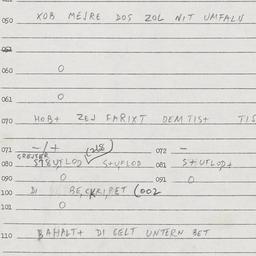 050 XOB MEJRE DOS ZOL NIT UMFALN
060 O
061 O
070 HOB+ ZEJ FARIXT DEMTIST TIS
071 -/+ 072 -
GREJSER
080 STUFLOD S+UFLOD 081 S+UFLOD+
090 O 091 O
100 DI BE,CKRIPET (002
101 O
110 BAHALT+ DI GELT UNTERN BET